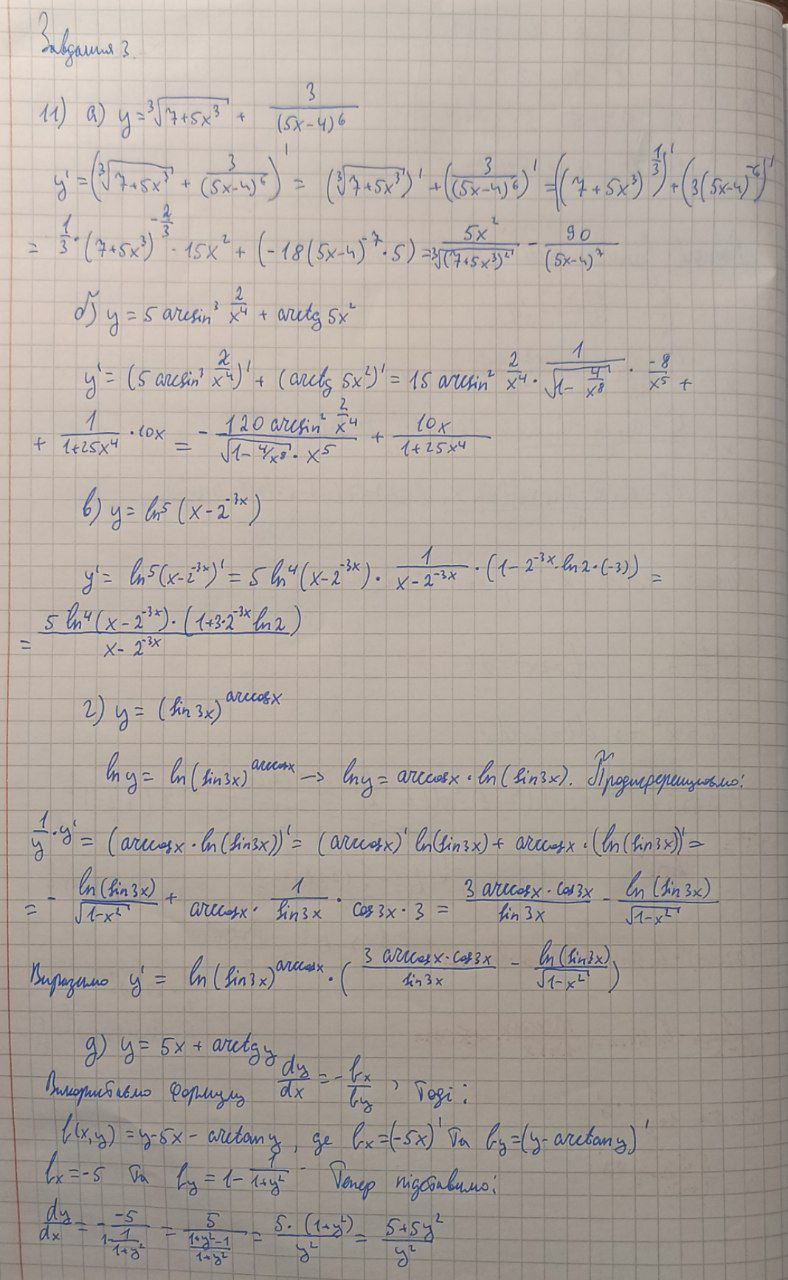 Завдання 3.
11) а) y = ∛(7+5x³) + 3/(5x-4)⁶
y' = (∛(7+5x³) + 3/(5x-4)⁶)' = (∛(7+5x³))' + (3/(5x-4)⁶)' = ((7+5x³)^(1/3))' + (3(5x-4)⁻⁶)'
= 1/3·(7+5x³)^(-2/3)·15x² + (-18(5x-4)⁻⁷·5) = 5x²/∛((7+5x³)²) - 90/(5x-4)⁷
б) y = 5 arcsin³ 2/x⁴ + arctg 5x²
y' = (5 arcsin³ 2/x⁴)' + (arctg 5x²)' = 15 arcsin² 2/x⁴ · 1/√(1-4/x⁸) · -8/x⁵ +
+ 1/(1+25x⁴) · 10x = - 120 arcsin² 2/x⁴ / (√(1-4/x⁸)·x⁵) + 10x/(1+25x⁴)
в) y = ln⁵(x-2⁻³ˣ)
y' = ln⁵(x-2⁻³ˣ)' = 5 ln⁴(x-2⁻³ˣ) · 1/(x-2⁻³ˣ) · (1-2⁻³ˣ·ln2·(-3)) =
= 5 ln⁴(x-2⁻³ˣ)·(1+3·2⁻³ˣ ln2) / (x-2⁻³ˣ)
г) y = (sin3x)^(arccosx)
lny = ln(sin3x)^(arccosx) → lny = arccosx · ln(sin3x). Продиференціюємо:
1/y · y' = (arccosx · ln(sin3x))' = (arccosx)' ln(sin3x) + arccosx · (ln(sin3x))' =
= - ln(sin3x)/√(1-x²) + arccosx · 1/sin3x · cos3x · 3 = 3 arccosx · cos3x / sin3x - ln(sin3x)/√(1-x²)
Виразимо y' = ln(sin3x)^(arccosx) · (3 arccosx · cos3x / sin3x - ln(sin3x)/√(1-x²))
д) y = 5x + arctgy
Використаємо формулу dy/dx = - fx/fy, Тоді:
f(x,y) = y-5x-arctany, де fx = (-5x)' та fy = (y-arctany)'
fx = -5 та fy = 1 - 1/(1+y²). Тепер підставимо:
dy/dx = - -5/(1-1/(1+y²)) = 5/((1+y²-1)/(1+y²)) = 5·(1+y²)/y² = (5+5y²)/y²